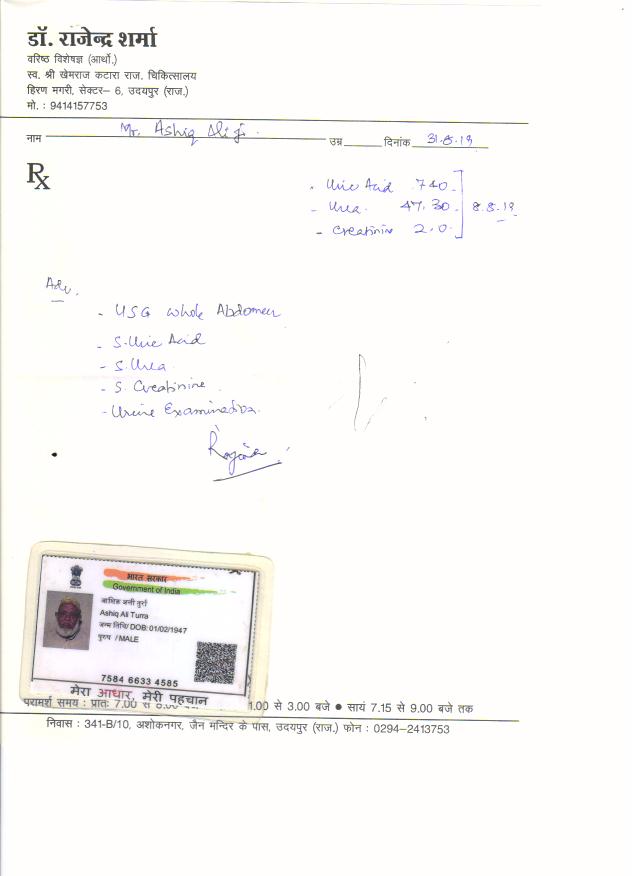 डॉ. राजेन्द्र शर्मा
वरिष्ठ विशेषज्ञ (आर्थो.)
स्व. श्री खेमराज कटारा राज. चिकित्सालय
हिरण मगरी, सेक्टर– 6, उदयपुर (राज.)
मो. : 9414157753
नाम Mr. Ashiq Ali ji. उम्र दिनांक 31.8.19
Rx
- Uric Acid 7.40
- Urea. 47.30 8.8.19
- Creatinine 2.0
Adv.
- USG Whole Abdomen
- S. Uric Acid
- S. Urea
- S. Creatinine
- Urine Examination.
भारत सरकार
Government of India
आशिक अली तुर्रा
Ashiq Ali Turra
जन्म तिथि/ DOB: 01/02/1947
पुरुष / MALE
7584 6633 4585
मेरा आधार, मेरी पहचान
परामर्श समय : प्रातः 7.00 से 1.00 से 3.00 बजे ● सायं 7.15 से 9.00 बजे तक
निवास : 341-B/10, अशोकनगर, जैन मन्दिर के पास, उदयपुर (राज.) फोन : 0294–2413753